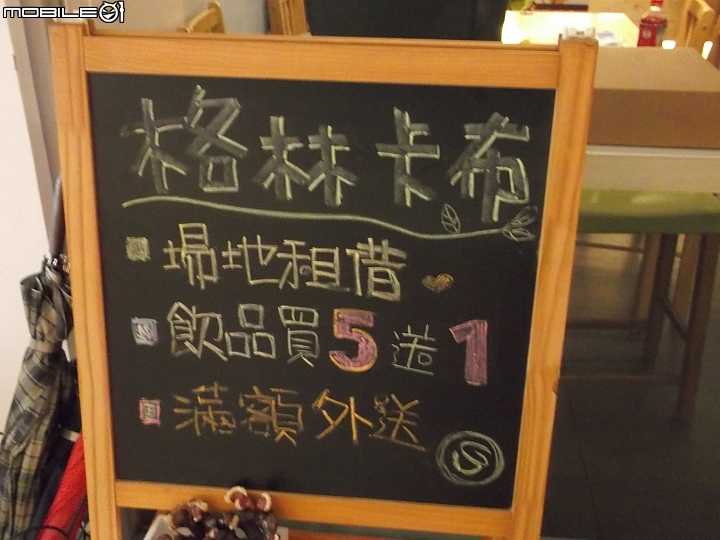 MOBILE01
格林卡布
場地租借
飲品買5送1
滿額外送
S